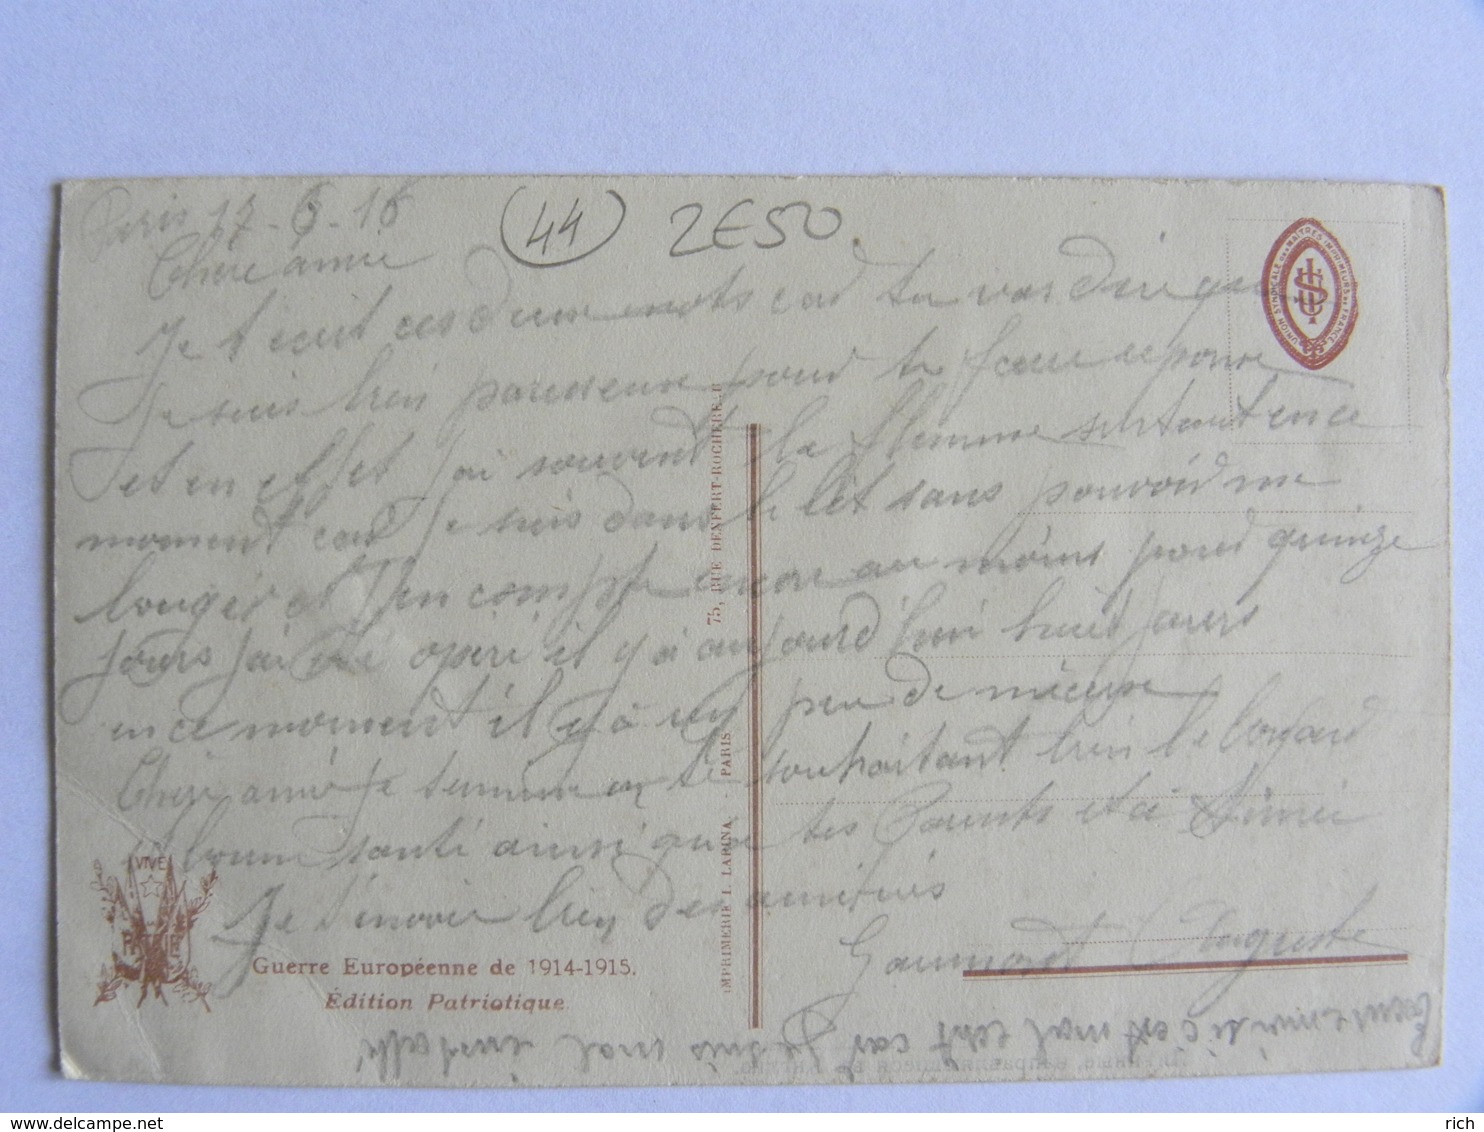 Paris 17-6-16
(44) 2E50.
Chere amie
Je t'ecrit ces deux mots card tu vas dire que
Je suis bien paresseuse pourd te faire reponse
et en effet j'ai souvent la flemme surtout en ce
moment card Je suis dans le lit sans pouvoid me
bouger et J'en compte encore au moins pourd quinze
jours j'ai été opéré il y a aujourd'hui huit jours
en ce moment il y a un peu de mieuse
Chere amie Je termine en te souhaitant bien le bonjard
bonne santé ainsi que tes Parents et a
Je t'envoie bien des amities
Gaumont Auguste
si c'est mal ecrit card Je suis mal installé
VIVE
Guerre Européenne de 1914-1915.
Édition Patriotique.
IMPRIMERIE I. LAPINA. - PARIS
75, RUE DENFERT-ROCHEREAU
UNION SYNDICALE DES MAÎTRES IMPRIMEURS DE FRANCE
www.delcampe.net
rich